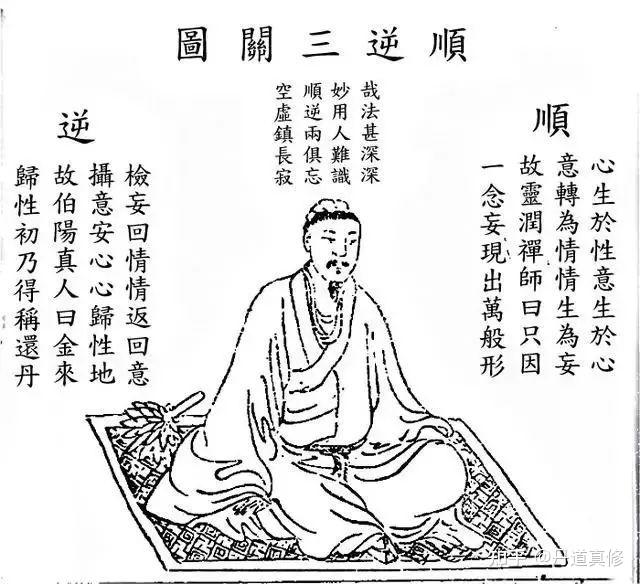 順逆三關圖
順
心生於性意生於心
意轉為情情生為妄
故靈潤禪師曰只因
一念妄現出萬般形
哉法甚深深
妙用人難識
順逆兩俱忘
空虛鎮長寂
逆
檢妄回情情返回意
攝意安心心歸性地
故伯陽真人曰金來
歸性初乃得稱還丹
知乎 @丹道真修